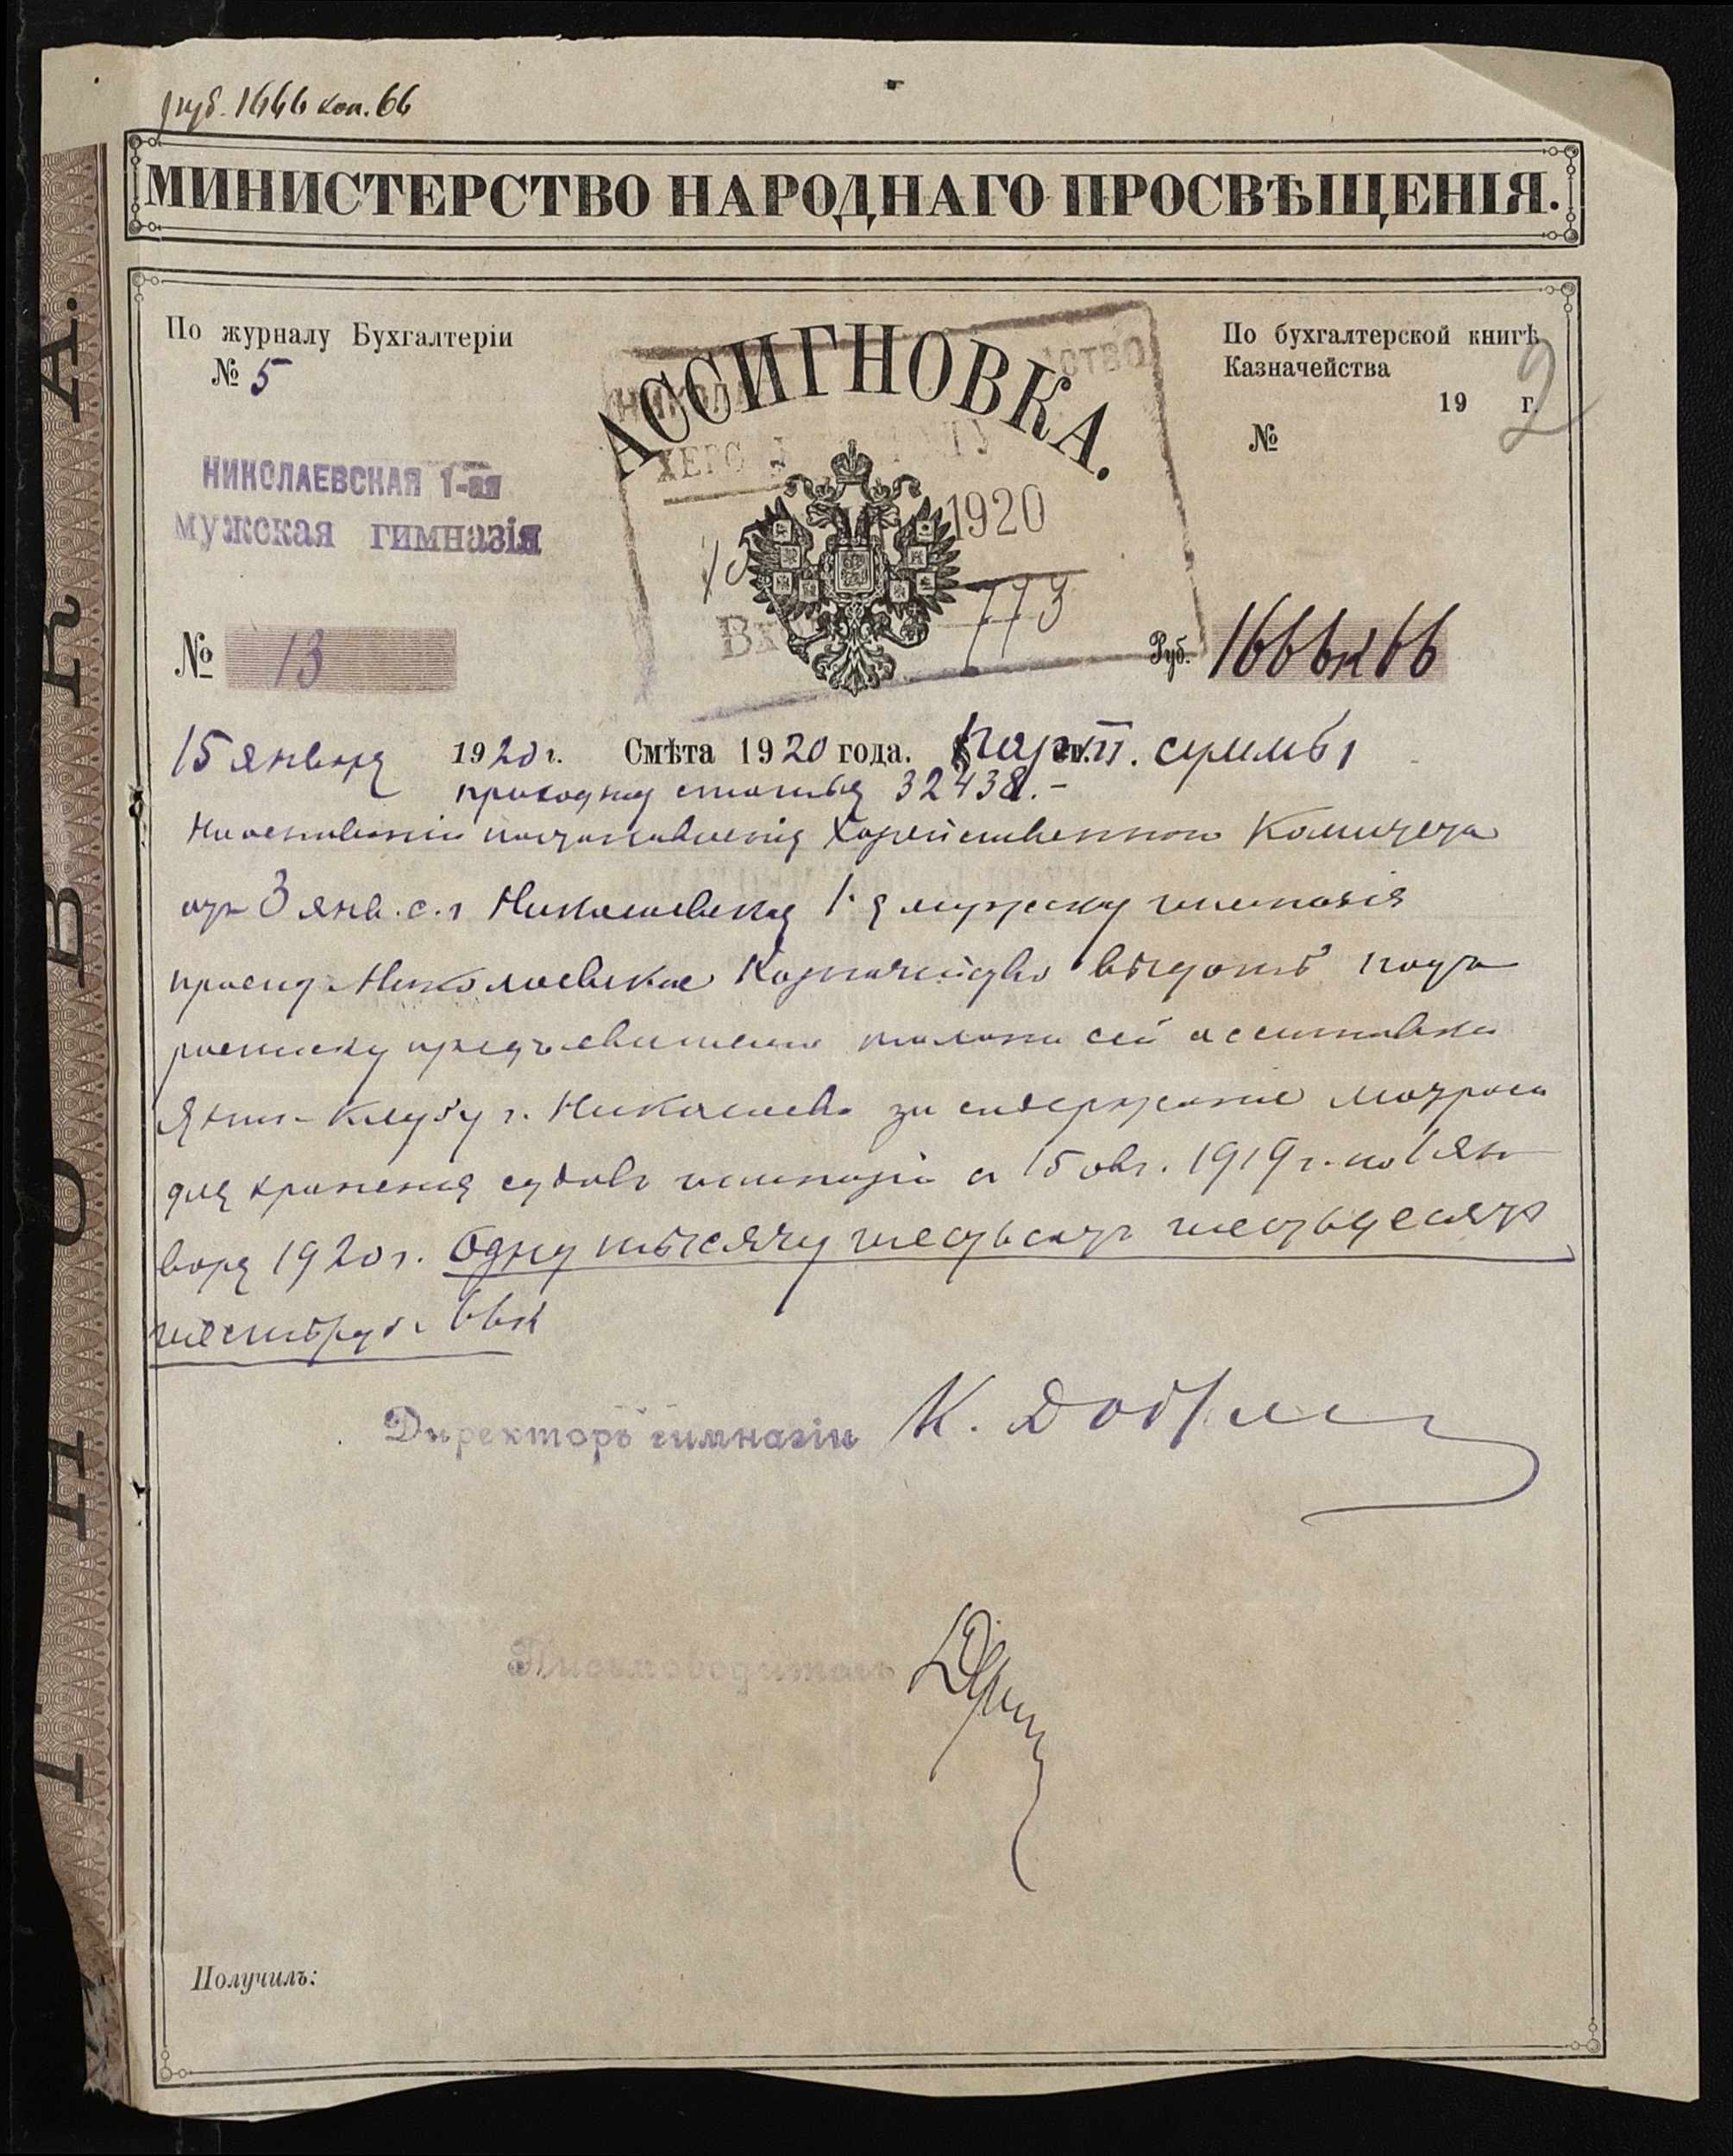 руб. 1666 коп. 66
МИНИСТЕРСТВО НАРОДНАГО ПРОСВѢЩЕНІЯ.
По журналу Бухгалтеріи
№ 5
АССИГНОВКА.
По бухгалтерской книгѣ
Казначейства
19 г.
№
2
НИКОЛАЕВСКАЯ 1-ая
мужская гимназія
1920
773
№ 13
Руб. 1666 к 66
15 января 1920 г. Смѣта 1920 года. суммы
приходная статья 32438.-
На основаніи постановленія Хозяйственнаго Комитета
отъ 3 янв. с. г. Николаевская 1-я мужская гимназія
проситъ Николаевское Казначейство выдать подъ
росписку предъявителю талона сей ассигновки
Яхт-Клубу г. Николаева за содержаніе матроса
для храненія судовъ гимназіи с 15 авг. 1919 г. по 1 Ян
варя 1920 г. Одну тысячу шестьсотъ шестьдесятъ
шесть руб. 66 к
Директоръ гимназіи К.
Письмоводитель
Получилъ: